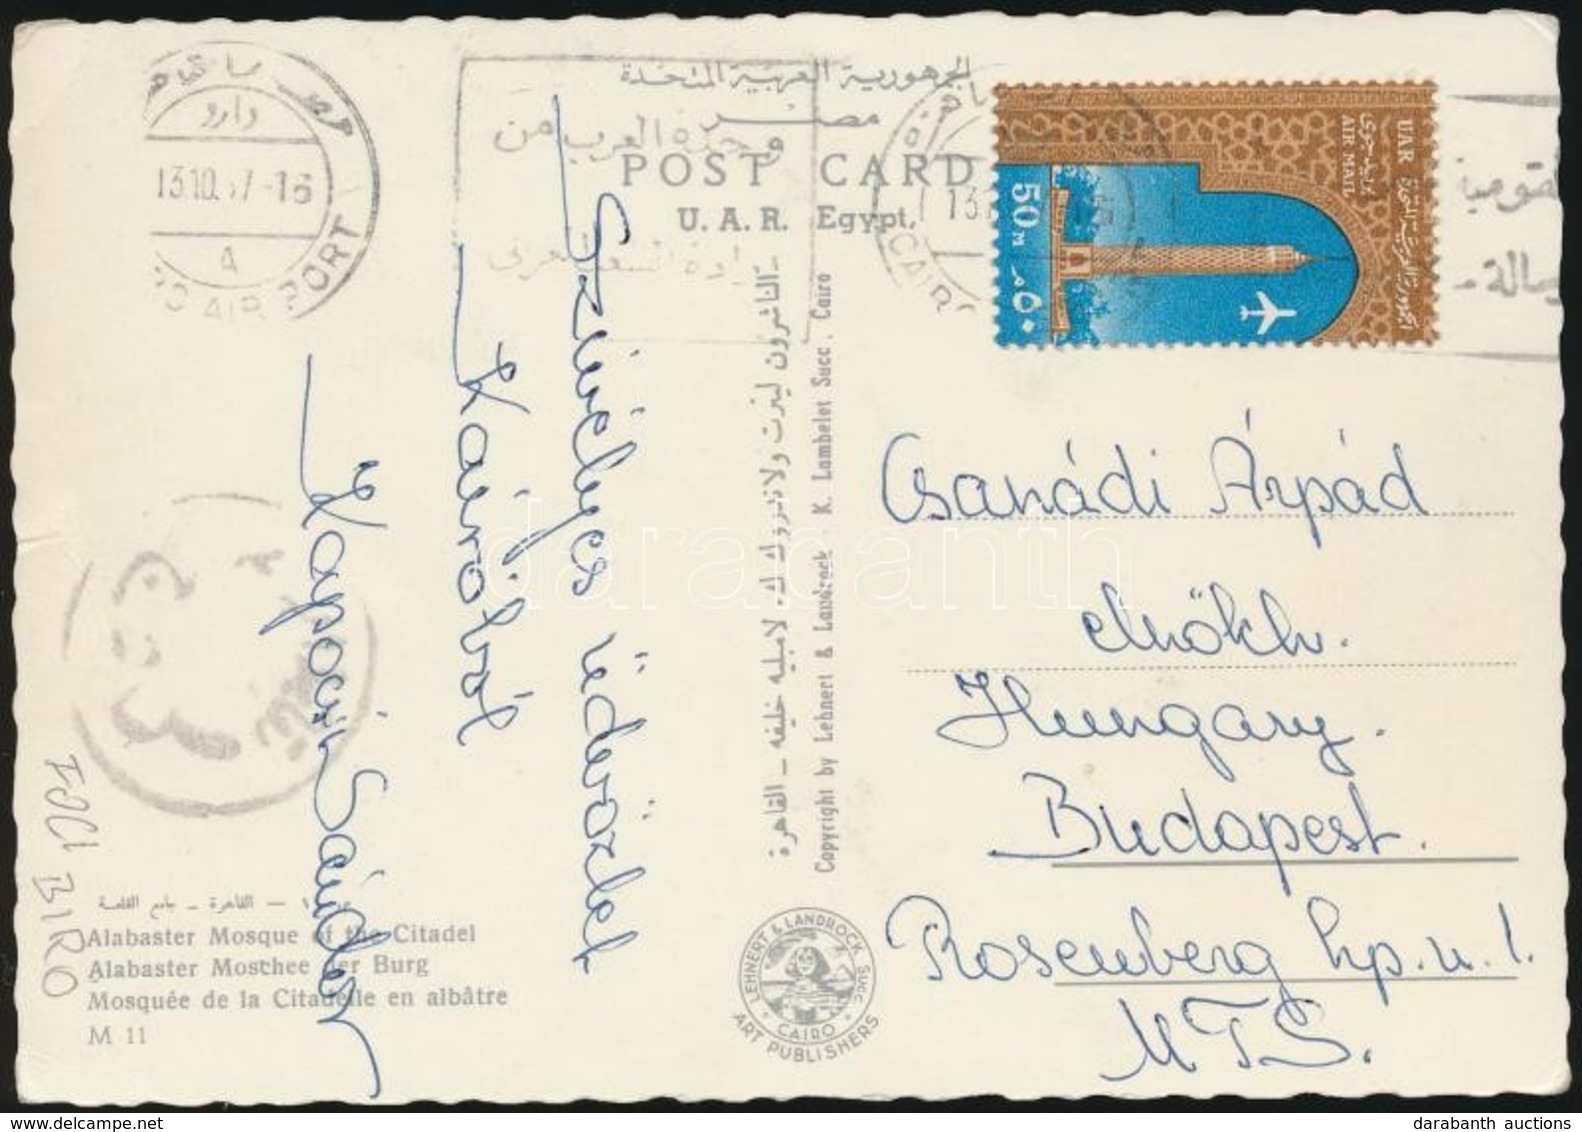 الجمهورية العربية المتحدة
مصر
POST CARD
U. A. R. Egypt,
13.10. 67-16
A
AIR PORT
CAIRO
U.A.R
AIR MAIL
50 m
٥٠
Szívélyes üdvözlet
Kairóból
Kapocsi Sándor
الناشرون لينرت ولاندروك ك. لامبليه خليفه - القاهرة
Copyright by Lehnert & Landrock - K. Lambelet Succ. Cairo
Csanádi Árpád
elvtárs
Hungary.
Budapest.
Rosenberg hp. u. 1.
MTS.
FOCI BIRO
القاهرة - جامع القلعة
Alabaster Mosque of the Citadel
Alabaster Moschee der Burg
Mosquée de la Citadelle en albâtre
M 11
LEHNERT & LANDROCK SUCC
CAIRO
ART PUBLISHERS
darabanth
darabanth auctions